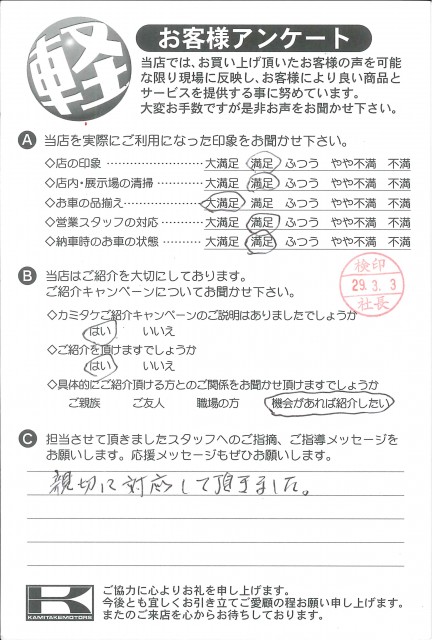 軽
お客様アンケート
当店では、お買い上げ頂いたお客様の声を可能
な限り現場に反映し、お客様により良い商品と
サービスを提供する事に努めています。
大変お手数ですが是非お声をお聞かせ下さい。
A 当店を実際にご利用になった印象をお聞かせ下さい。
◇店の印象 大満足 満足 ふつう やや不満 不満
◇店内・展示場の清掃 大満足 満足 ふつう やや不満 不満
◇お車の品揃え 大満足 満足 ふつう やや不満 不満
◇営業スタッフの対応 大満足 満足 ふつう やや不満 不満
◇納車時のお車の状態 大満足 満足 ふつう やや不満 不満
B 当店はご紹介を大切にしております。
ご紹介キャンペーンについてお聞かせ下さい。
検印
29.3.3
社長
◇カミタケご紹介キャンペーンのご説明はありましたでしょうか
はい いいえ
◇ご紹介を頂けますでしょうか
はい いいえ
◇具体的にご紹介頂ける方とのご関係をお聞かせ頂けますでしょうか
ご親族 ご友人 職場の方 機会があれば紹介したい
C 担当させて頂きましたスタッフへのご指摘、ご指導メッセージを
お願いします。応援メッセージもぜひお願いします。
親切に対応して頂きました。
K
KAMITAKEMOTORS
ご協力に心よりお礼を申し上げます。
今後とも宜しくお引き立てご愛顧の程お願い申し上げます。
またのご来店を心からお待ちしております。